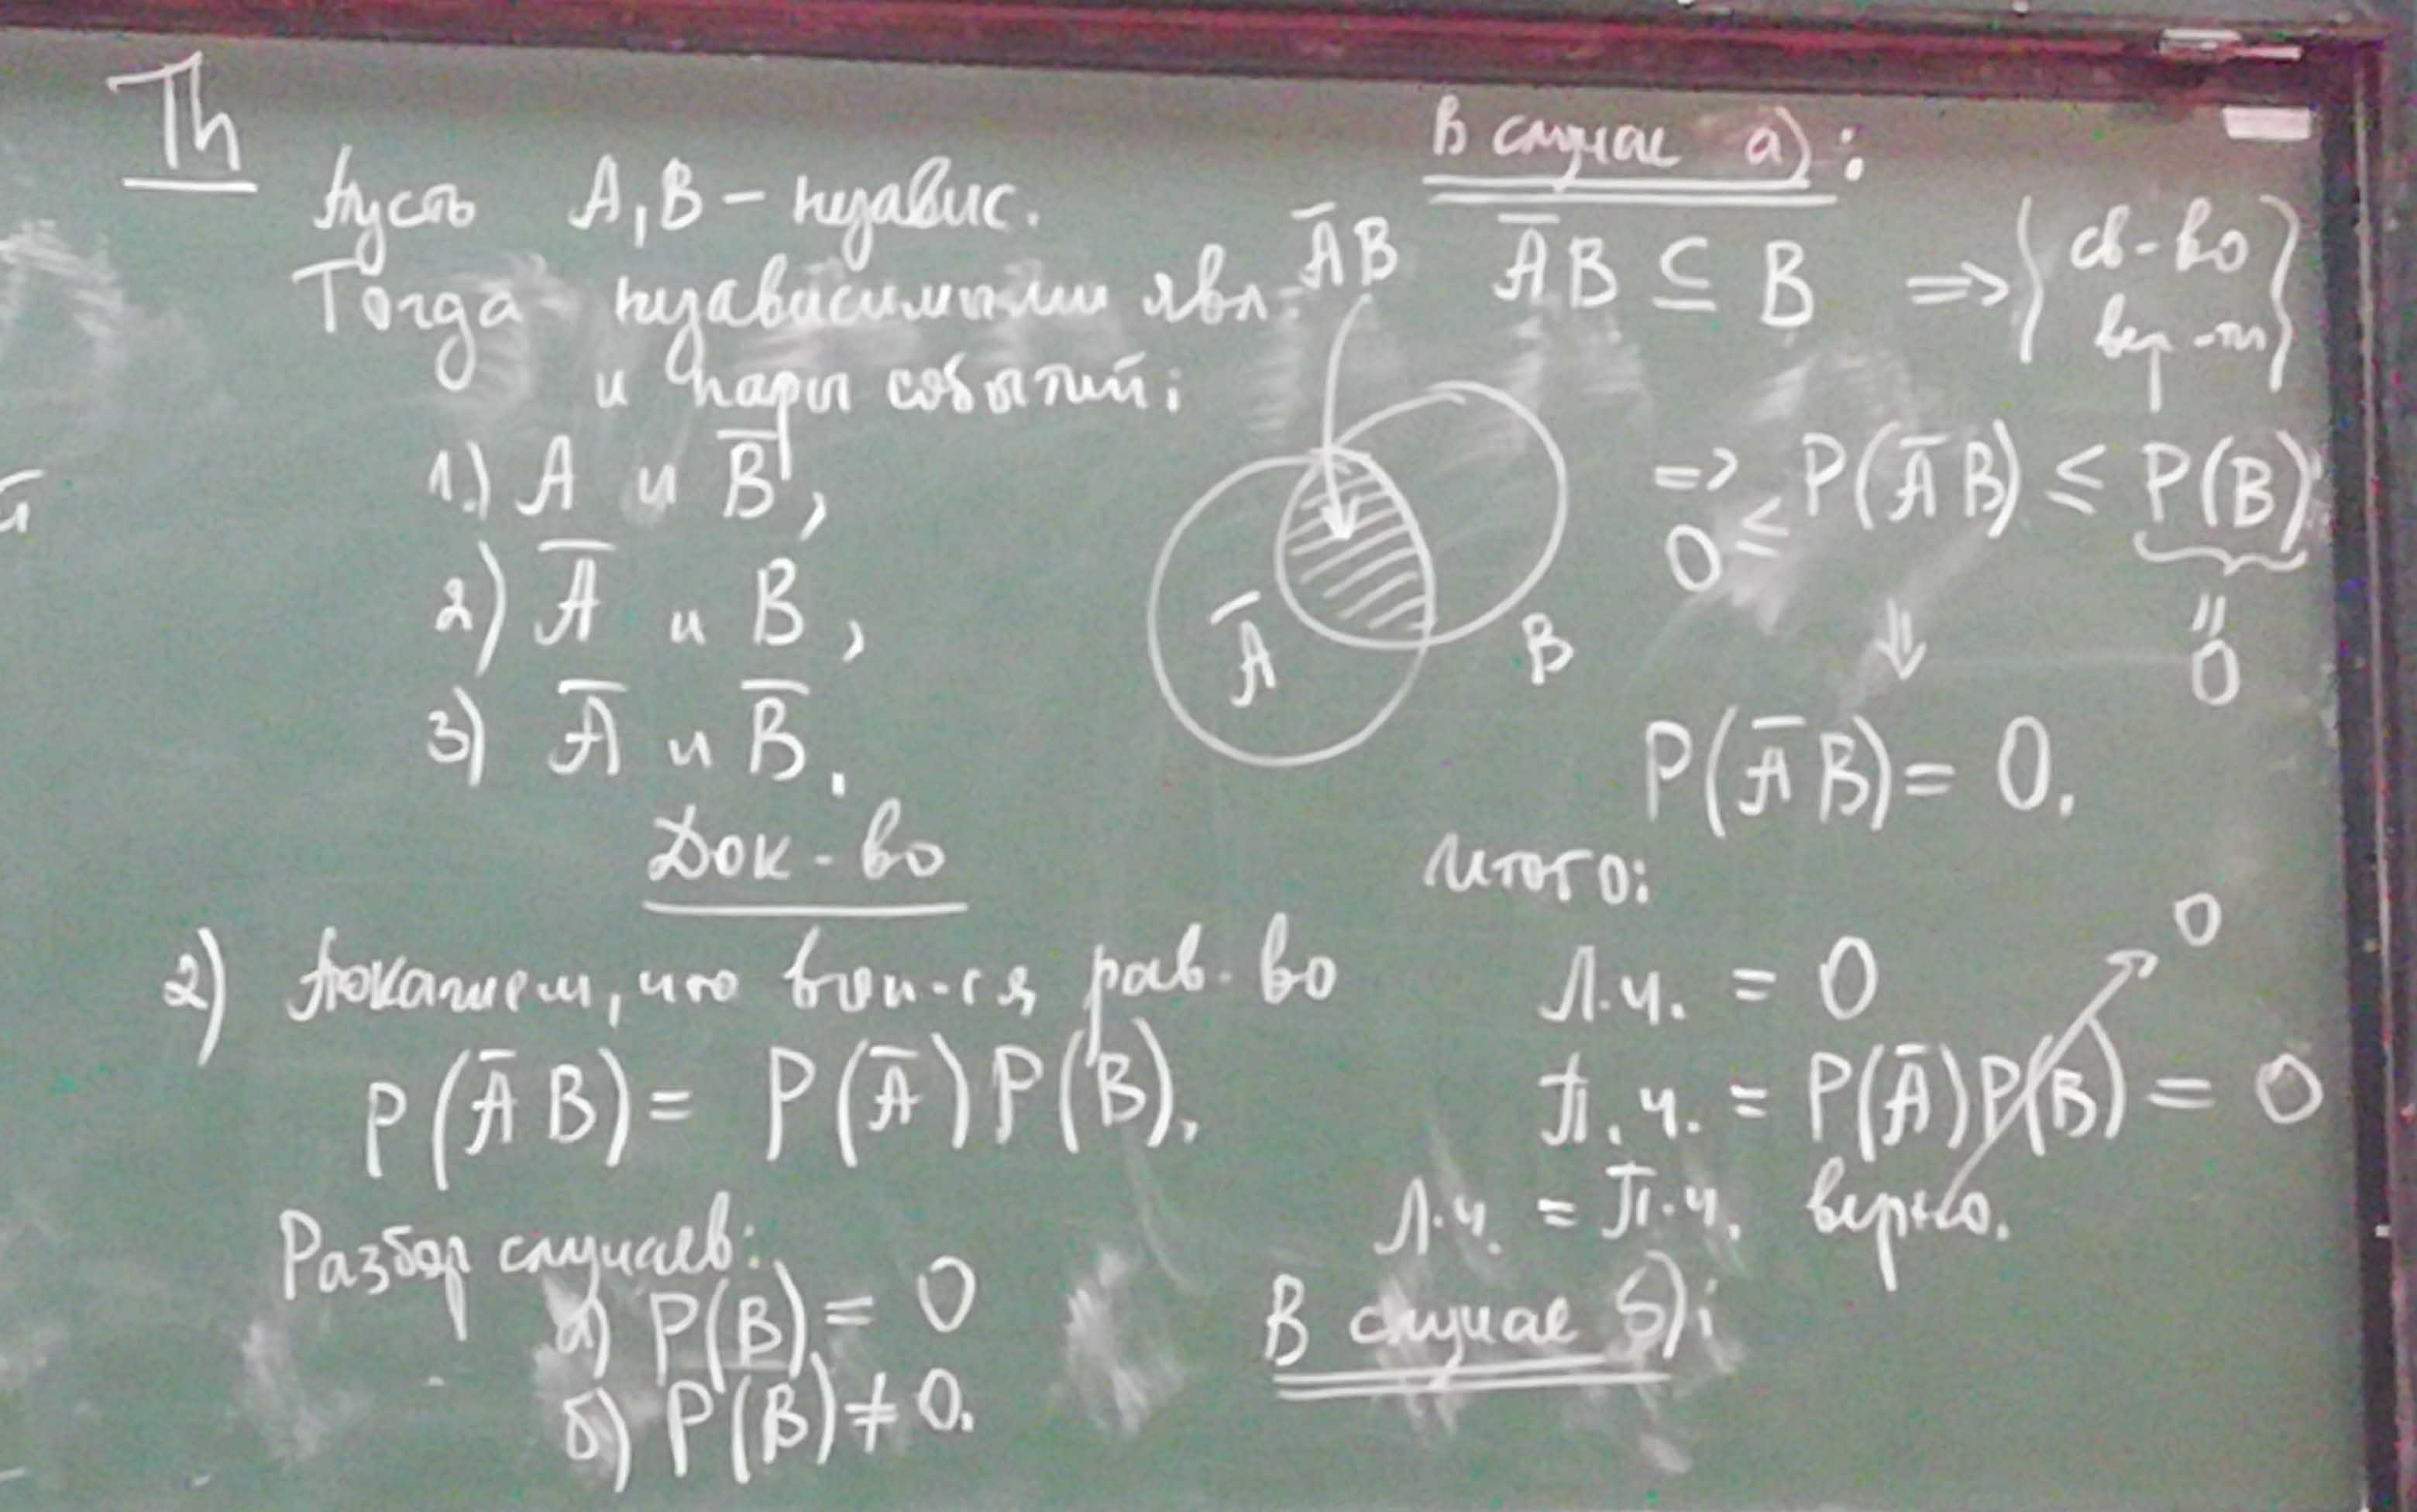 Th
Пусть A, B – независ.
Тогда независимыми явл.
и пары событий:
1) A и B̅,
2) A̅ и B,
3) A̅ и B̅.
Док-во
2) Покажем, что вып-ся рав-во
P(A̅B) = P(A̅)P(B).
Разбор случаев:
а) P(B) = 0
б) P(B) ≠ 0.
В случае а):
A̅B
A̅B ⊆ B ⇒ { св-во
вер-ти }
A̅
B
⇒
0 ≤ P(A̅B) ≤ P(B)
=
0
⇓
P(A̅B) = 0.
Итого:
Л.ч. = 0
0
П.ч. = P(A̅)P(B) = 0
Л.ч. = П.ч. верно.
В случае б):